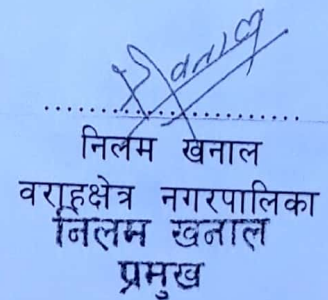 ..............................
निलम खनाल
वराहक्षेत्र नगरपालिका
निलम खनाल
प्रमुख